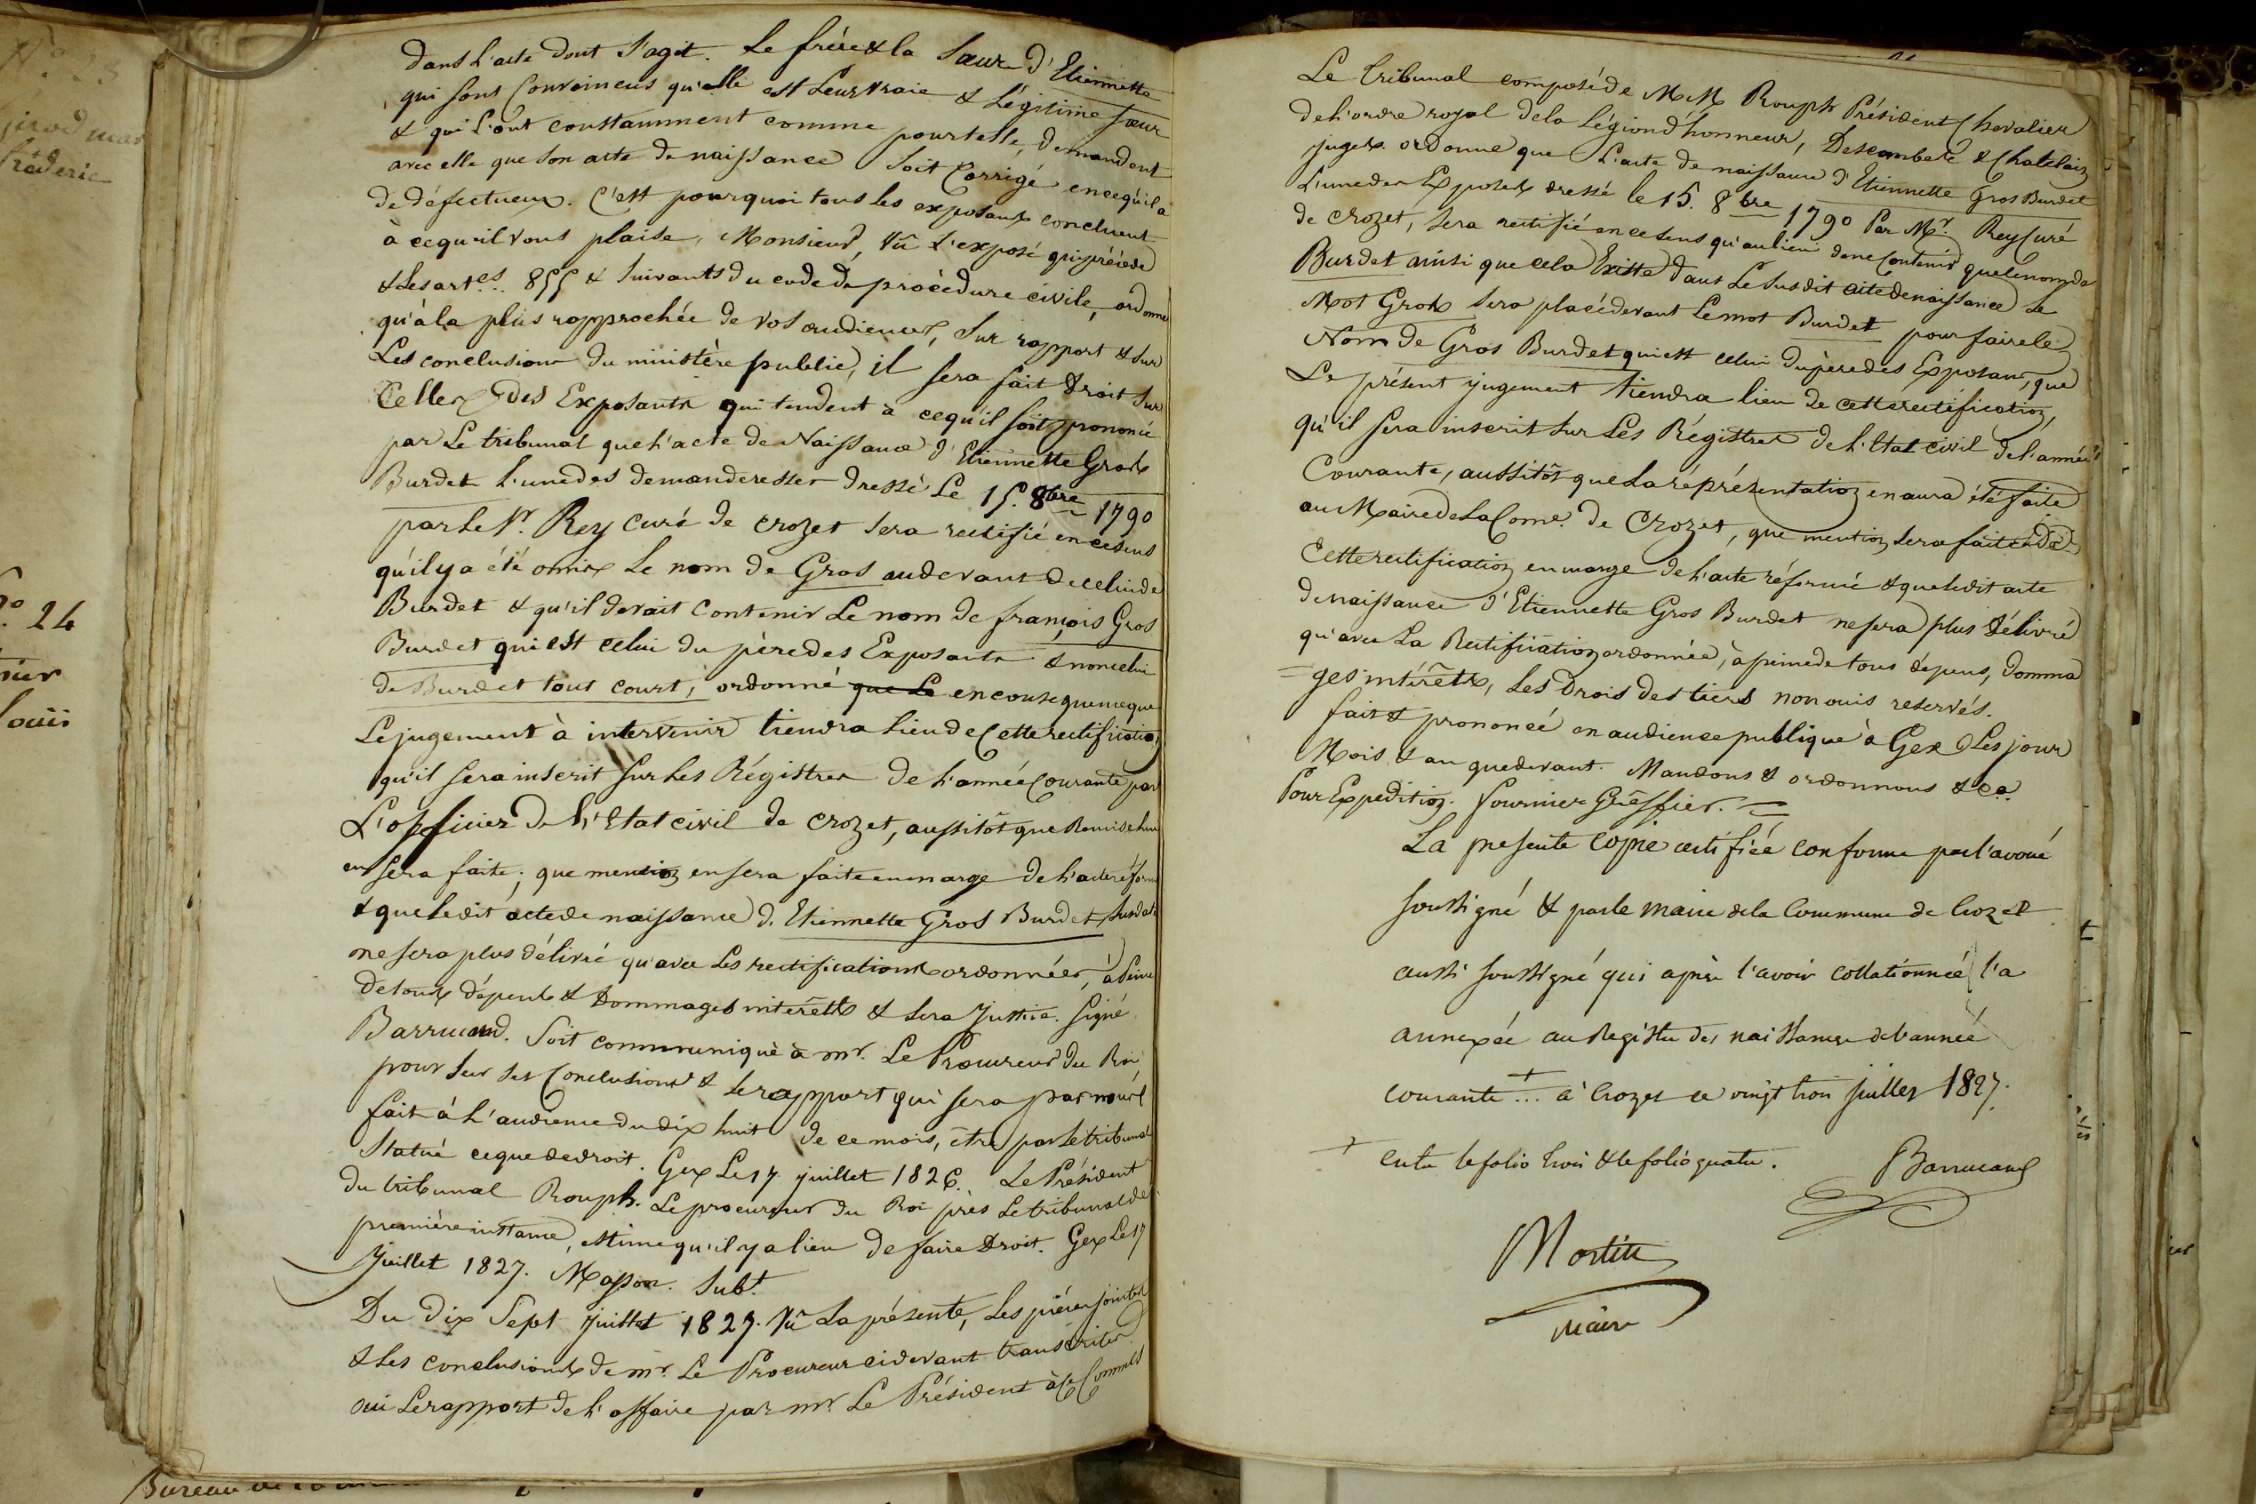 N° 23
girod marc
fréderic
N° 24
Louis
dans l'acte dont s'agit. Le frère & la sœur d'Etiennette
qui sont convaincus qu'elle est leur vraie & légitime sœur
& qui l'ont constamment comme pour telle, demandent
avec elle que son acte de naissance soit corrigé en ce qu'il a
de défectueux. C'est pourquoi tous les exposants concluent
à ce qu'il vous plaise, Monsieur, Vû l'exposé qui précède
& les artes. 855 & suivants du code de procèdure civile, ordonner
qu'à la plus rapprochée de vos audiences, sur rapport & sur
Les conclusions du ministère public, il sera fait droit sur
Celles des Exposants qui tendent à ce qu'il soit prononcé
par Le tribunal que l'acte de Naissance d'Etiennette Gros
Burdet l'une des demanderesses dressé Le 15. 8bre 1790
par le Sr. Rey curé de crozet sera rectifié en ce sens
qu'il y a été omis Le nom de Gros au devant de celui de
Burdet & qu'il devait contenir Le nom de françois Gros
Burdet qui est celui du père des Exposants & non celui
de Burdet tout court, ordonné que Le en conséquence que
Le jugement à intervenir tiendra lieu de Cette rectification
qu'il sera inscrit sur Les Régistres de l'année Courante par
L'officier de l'Etat civil de crozet, aussitôt que Remise lui
en sera faite; que mention en sera faite en marge de l'acte réformé
& que le dit acte de naissance d'Etiennette Gros Burdet susdaté
ne sera plus délivré qu'avec Les rectifications ordonnées, à peine
de tous dépens & Dommages intérêts & sera Justice. Signé
Barrucand. Soit communiqué à mr. Le Procureur du Roi,
pour sur ses Conclusions & Le rapport qui sera par nous
fait à l'audience du dix huit de ce mois, être par Le tribunal
Statué ce que de droit. Gex Le 17 juillet 1826. Le Président
du tribunal Rouph. Le procureur du Roi près Le tribunal de
première instance, estime qu'il y a lieu de faire Droit. Gex Le 17
Juillet 1827. Masson. Subt.
Du dix Sept juillet 1827. Vû La présente, Les pièces jointes
& Les conclusions de mr. Le Procureur ci devant transcrites
oui Le rapport de l'affaire par mr. Le Président à ce Commis
Le tribunal composé de MM Rouph Président Chevalier
de l'ordre royal de la Légion d'honneur, Descombes & Chatelain
juges. ordonne que L'acte de naissance d'Etiennette Gros Burdet
L'une des Exposants dressé le 15. 8bre 1790 Par Mr. Rey Curé
de crozet, sera rectifié en ce sens qu'au lieu de ne contenir que le nom de
Burdet ainsi que cela Existe dans Le susdit acte de naissance Le
Mot Gros sera placé devant Le mot Burdet pour faire le
Nom de Gros Burdet qui est celui du père des Exposans, que
Le présent jugement tiendra lieu de cette rectification,
qu'il sera inscrit sur Les Régistres de l'Etat civil de l'année
Courante, aussitôt que La réprésentation en aura été faite
au Maire de La Come. de Crozet, que mention sera faite de
Cette rectification en marge de l'acte réformé & que ledit acte
de naissance d'Etiennette Gros Burdet ne sera plus délivré
qu'avec La Rectification ordonnée, à peine de tous dépens, Domma
= ges intérêts, Les Drois des tiers non ouis reservés.
fait & prononcé en audience publique à Gex Les jour
Mois & an que devant. Mandons & ordonnons &ca.
Pour Expédition. fournier Gréffier. =
La presente copie certifiée conforme par l'avoué
soussigné & par le maire de la Commune de Crozet
aussi soussigné qui après l'avoir collationnée l'a
annexée au Registre des naissances de l'année
courante + ... à Crozet ce vingt trois juillet 1827.
+ entre le folio trois & le folio quatre.
Barrucand
Martin
maire
Bureau